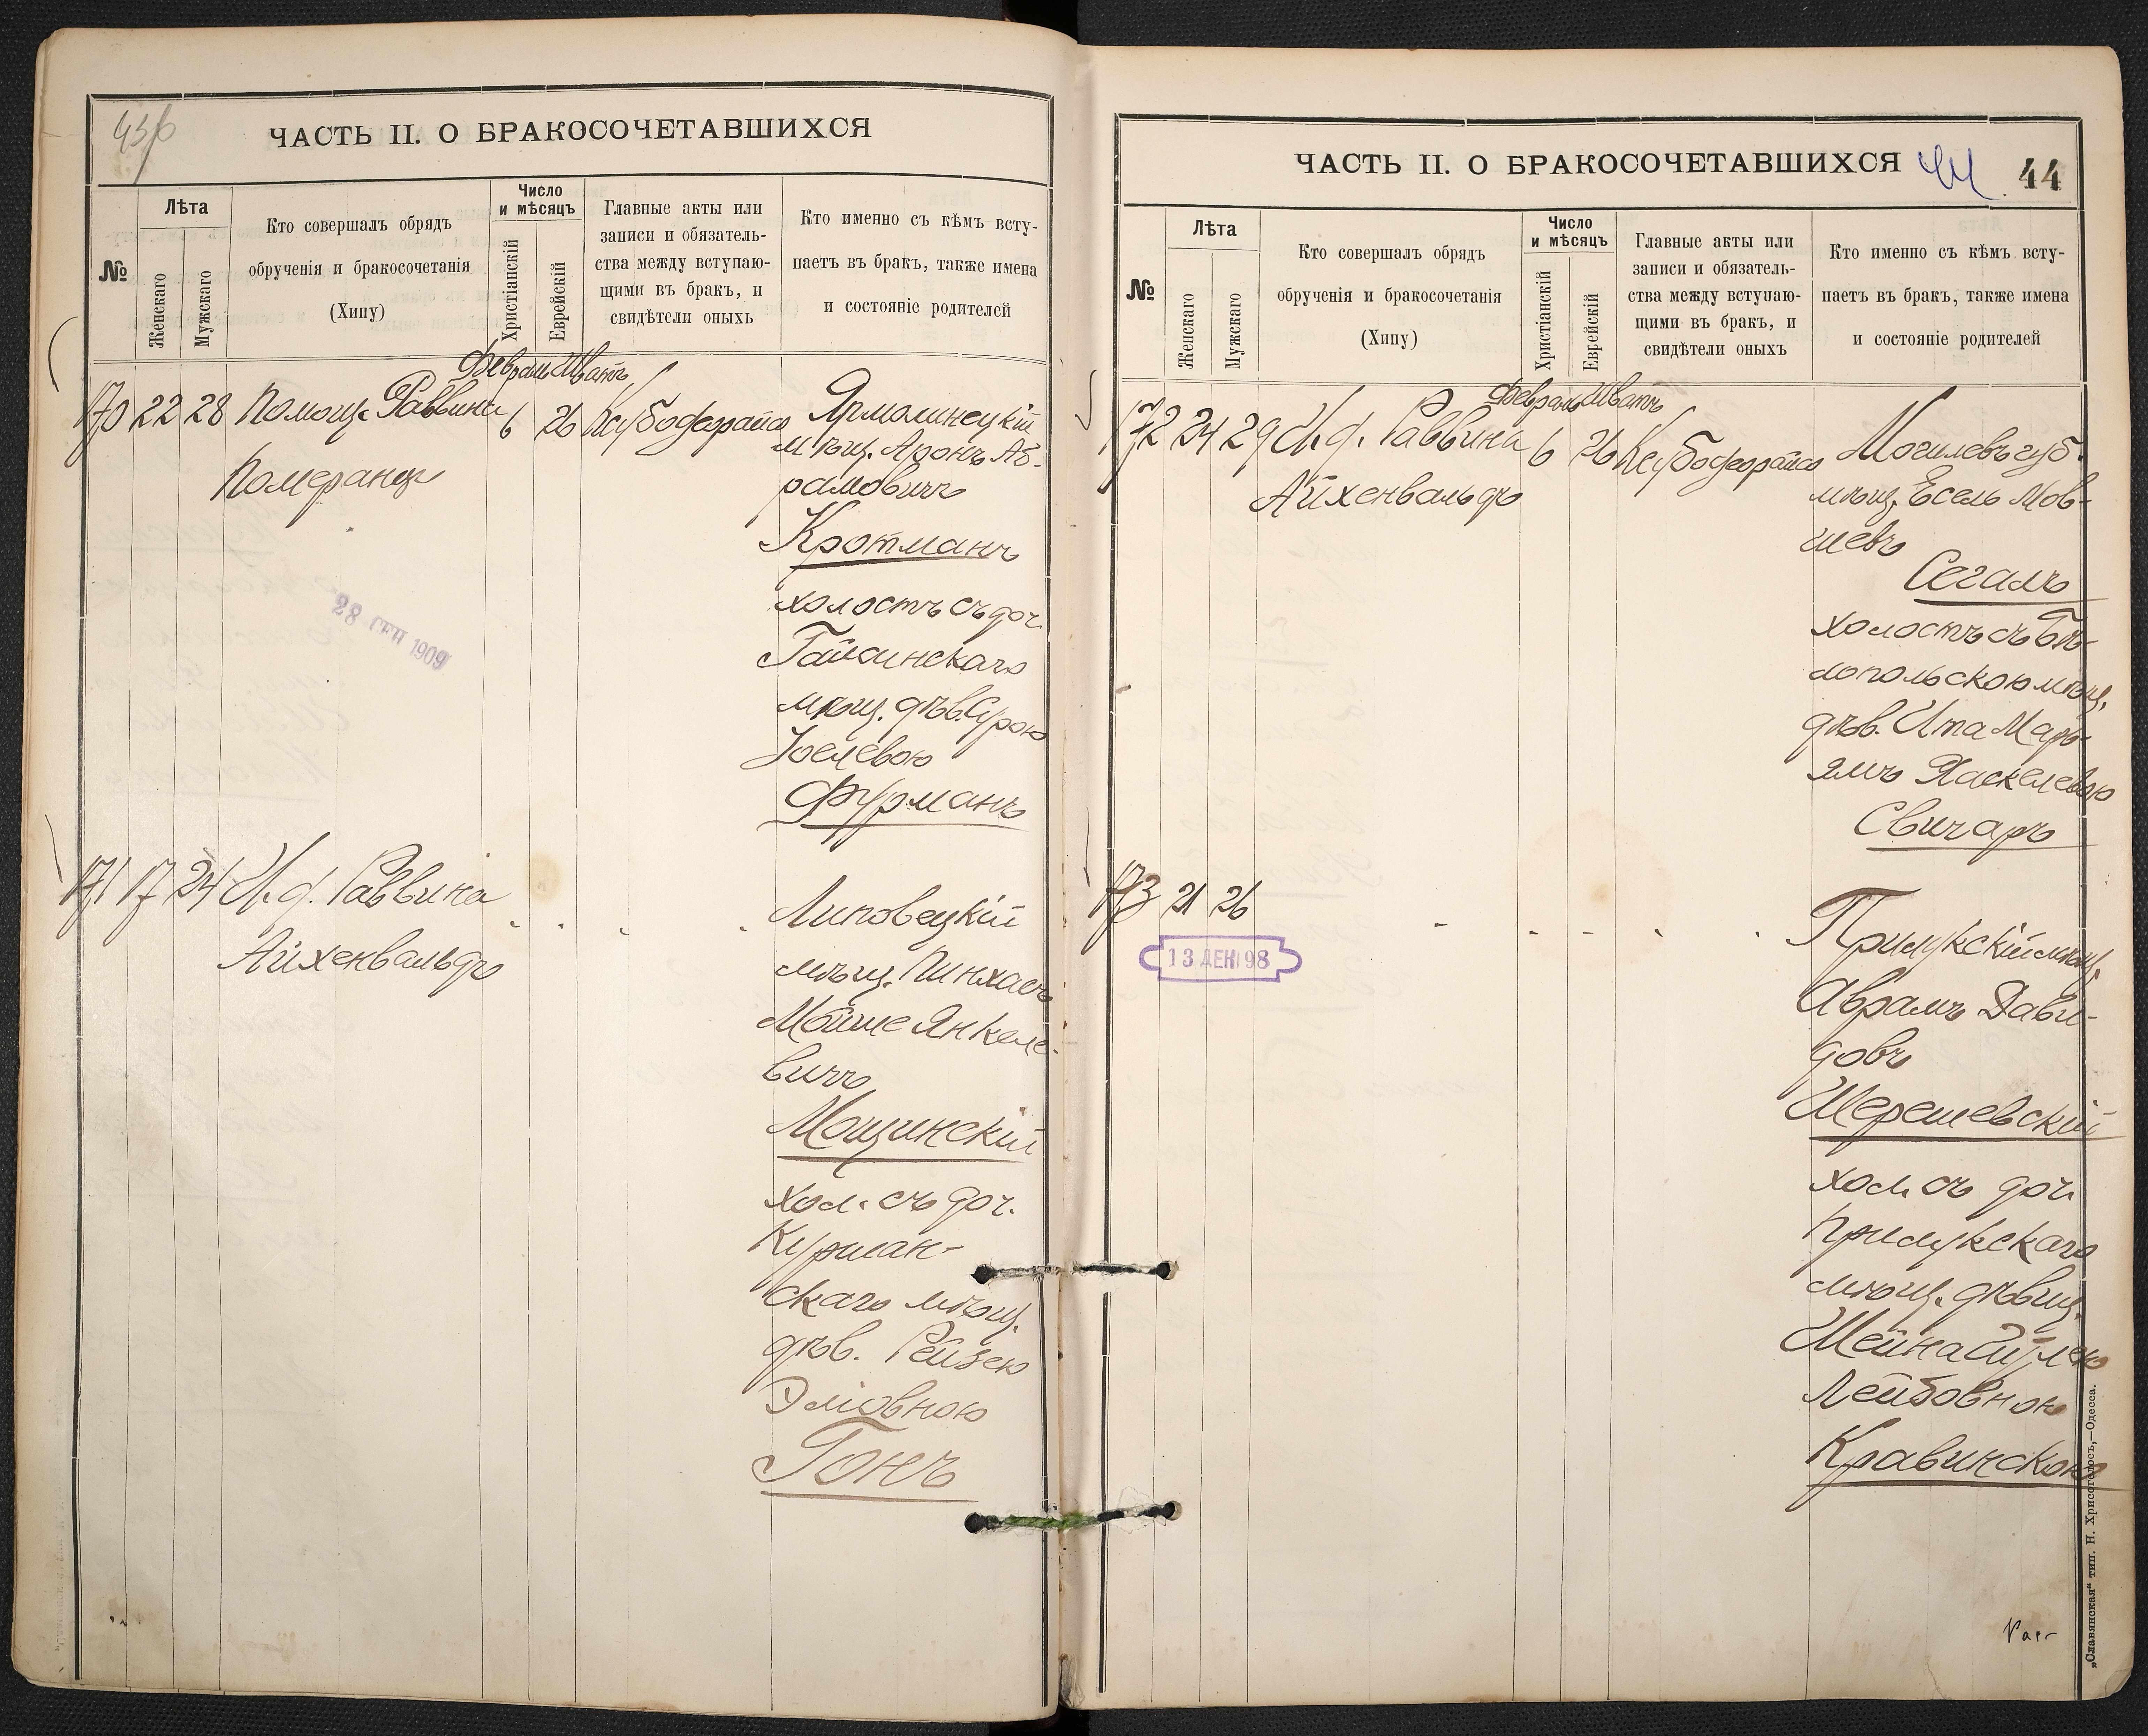 43/b
ЧАСТЬ II. О БРАКОСОЧЕТАВШИХСЯ
№
Лѣта
Женскаго
Мужскаго
Кто совершалъ обрядъ
обрученія и бракосочетанія
(Хипу)
Число
и мѣсяцъ
Христіанскій
Еврейскій
Главные акты или
записи и обязатель-
ства между вступаю-
щими въ бракъ, и
свидѣтели оныхъ
Кто именно съ кѣмъ всту-
паетъ въ бракъ, также имена
и состояніе родителей
Февраль Шватъ
170 22 28 Помощ. Раввина 6 26 Ксубофрайсо
Померанцъ
Ярмолинецкій
мѣщ. Аронъ Аб-
рамовичъ
Кротманъ
холостъ съ доч.
Гайсинскаго
мѣщ. дѣв. Сурою
Іоелевою
Фурманъ
28 СЕН 1909
171 17 24 И. д. Раввина
Айхенвальдъ
Липовецкій
мѣщ. Пинхасъ
Мойше Янкеле-
вичъ
Мощинскій
хол. съ доч.
Купман-
скаго мѣщ.
дѣв. Рейзею
Эліовною
Гонъ
ЧАСТЬ II. О БРАКОСОЧЕТАВШИХСЯ
44
44
№
Лѣта
Женскаго
Мужскаго
Кто совершалъ обрядъ
обрученія и бракосочетанія
(Хипу)
Число
и мѣсяцъ
Христіанскій
Еврейскій
Главные акты или
записи и обязатель-
ства между вступаю-
щими въ бракъ, и
свидѣтели оныхъ
Кто именно съ кѣмъ всту-
паетъ въ бракъ, также имена
и состояніе родителей
Февраль Шватъ
172 24 29 И. д. Раввина 6 26 Ксубофрайсо
Айхенвальдъ
Могилевъ губ.
мѣщ. Есель Мов-
шевъ
Сегалъ
холостъ съ Бѣ-
лопольскою мѣщ.
дѣв. Ита Марь-
ямъ Хаскелевою
Свичаръ
173 21 26
13 ДЕК 98
Прилукскій мѣщ.
Аврамъ Дави-
довъ
Шерешевскій
хол. съ доч.
Прилукскаго
мѣщ. дѣвиц.
Шейна
Лейбовною
Кравинскою
„Славянская“ тип. Н. Хрисогелосъ,—Одесса.